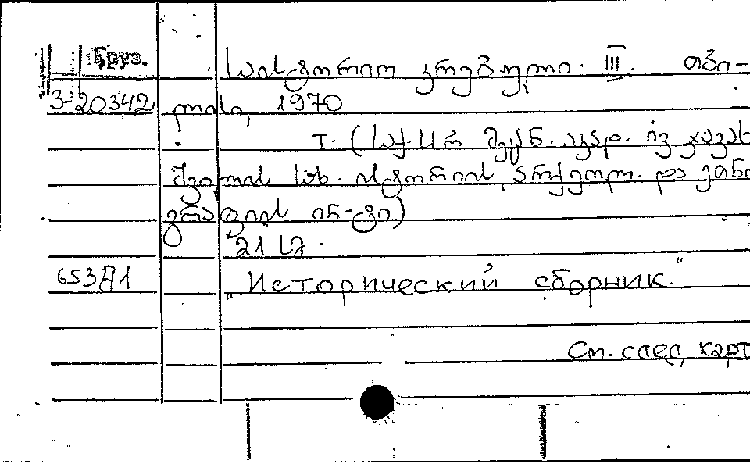 Груз.
საისტორიო კრებული. III. თბი-
3-20342 ლისი, 1970
т. (საქ. სსრ მეცნ. აკად. ივ. ჯავახ
შვილის სახ. ისტორიის, არქეოლ. და ეთნო
გრაფიის ინ-ტი)
21 სმ.
653 71 "Исторический сборник."
См. след. карт